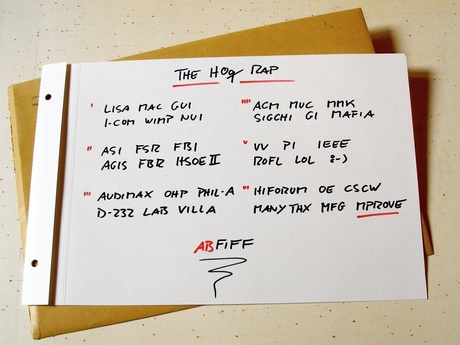 THE HOg RAP
' LISA MAC GUI
I-COM WIMP NUI
" ASI FSR FBI
AGIS FBR HSOE II
''' AUDIMAX OHP PHIL-A
D-232 LAB VILLA
'''' ACM MUC MMK
SIGCHI GI MAFIA
V VV PI IEEE
ROFL LOL :-)
VI HIFORUM OE CSCW
MANY THX MFG MPROVE
ABFIFF